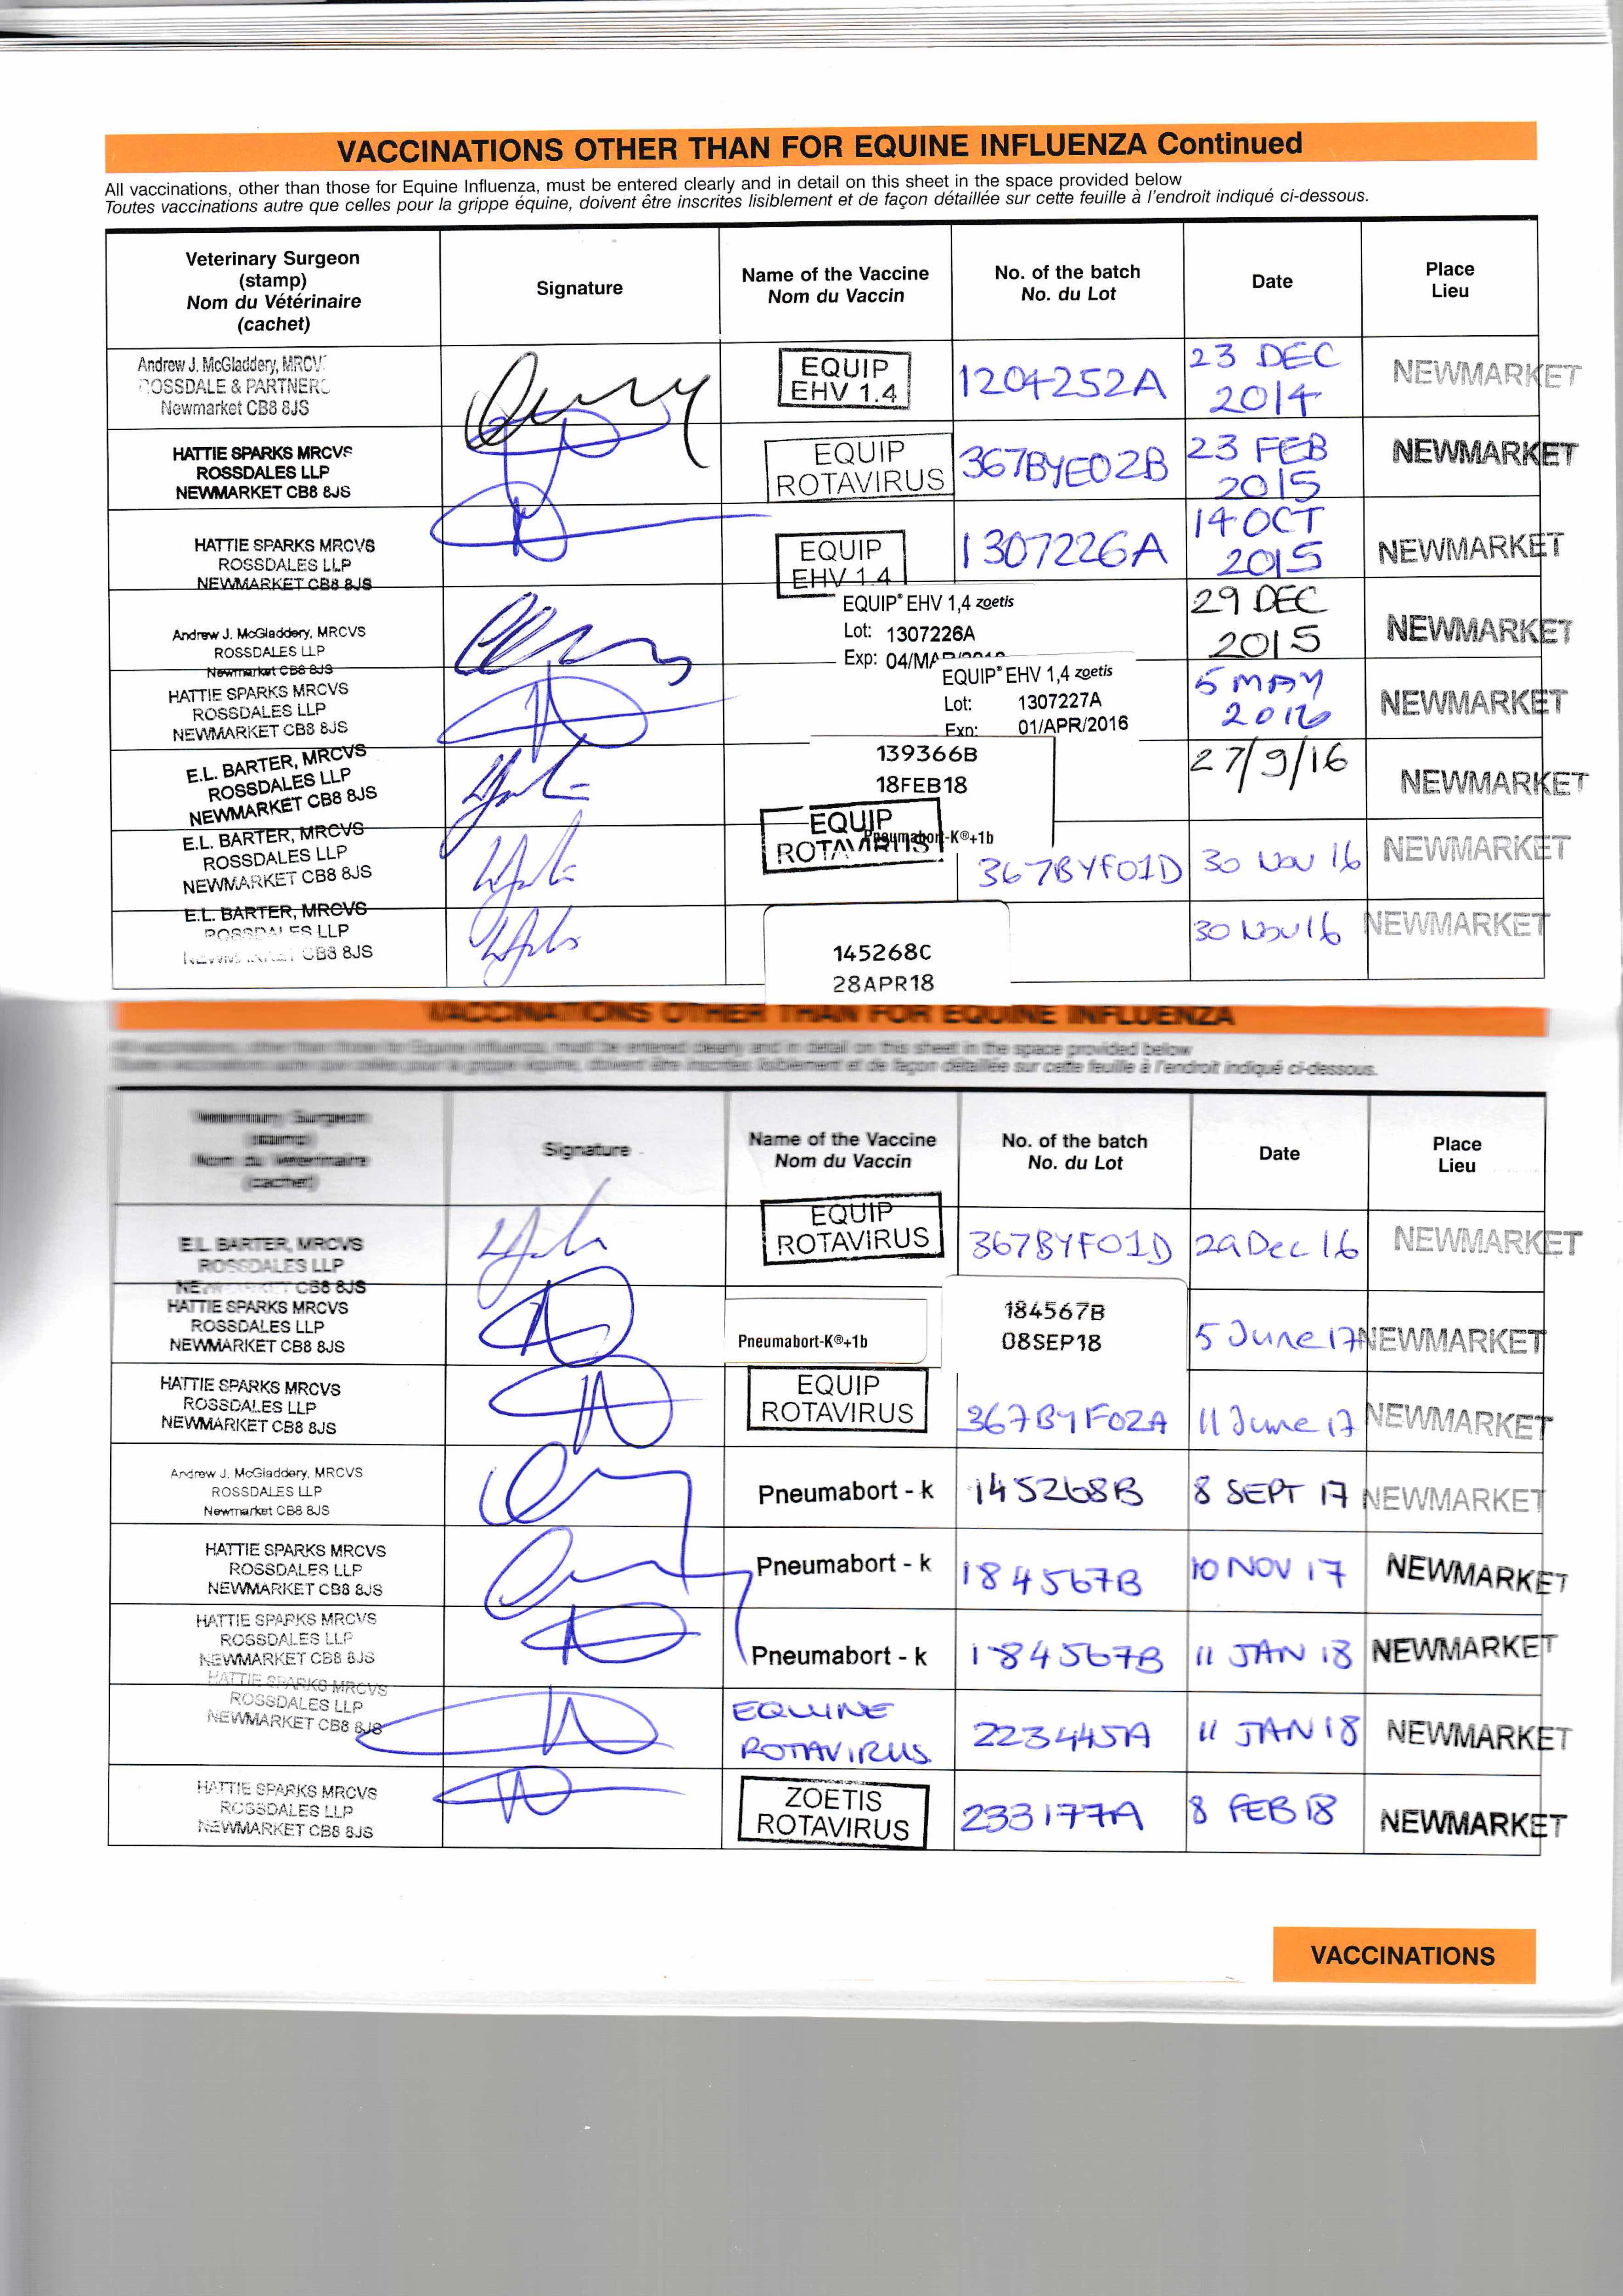 VACCINATIONS OTHER THAN FOR EQUINE INFLUENZA Continued
All vaccinations, other than those for Equine Influenza, must be entered clearly and in detail on this sheet in the space provided below
Toutes vaccinations autre que celles pour la grippe équine, doivent être inscrites lisiblement et de façon détaillée sur cette feuille à l'endroit indiqué ci-dessous.
Veterinary Surgeon
(stamp)
Nom du Vétérinaire
(cachet)
Signature
Name of the Vaccine
Nom du Vaccin
No. of the batch
No. du Lot
Date
Place
Lieu
Andrew J. McGladdery, MRCV
ROSSDALE & PARTNERS
Newmarket CB8 8JS
EQUIP
EHV 1.4
1204252A
23 DEC
2014
NEWMARKET
HATTIE SPARKS MRCVS
ROSSDALES LLP
NEWMARKET CB8 8JS
EQUIP
ROTAVIRUS
367BYE02B
23 FEB
2015
NEWMARKET
HATTIE SPARKS MRCVS
ROSSDALES LLP
NEWMARKET CB8 8JS
EQUIP
EHV 1.4
1307226A
14 OCT
2015
NEWMARKET
Andrew J. McGladdery, MRCVS
ROSSDALES LLP
Newmarket CB8 8JS
EQUIP® EHV 1,4 zoetis
Lot: 1307226A
Exp: 04/MAR
29 DEC
2015
NEWMARKET
HATTIE SPARKS MRCVS
ROSSDALES LLP
NEWMARKET CB8 8JS
EQUIP® EHV 1,4 zoetis
Lot: 1307227A
Exp: 01/APR/2016
5 MAY
2016
NEWMARKET
E.L. BARTER, MRCVS
ROSSDALES LLP
NEWMARKET CB8 8JS
139366B
18FEB18
Pneumabort-K®+1b
27/9/16
NEWMARKET
E.L. BARTER, MRCVS
ROSSDALES LLP
NEWMARKET CB8 8JS
EQUIP
ROTAVIRUS
367BYF01D
30 NOV 16
NEWMARKET
E.L. BARTER, MRCVS
ROSSDALES LLP
CB8 8JS
145268C
28APR18
30 Nov 16
NEWMARKET
VACCINATIONS OTHER THAN FOR EQUINE INFLUENZA
All vaccinations, other than those for Equine Influenza, must be entered clearly and in detail on this sheet in the space provided below
Toutes vaccinations autre que celles pour la grippe équine, doivent être inscrites lisiblement et de façon détaillée sur cette feuille à l'endroit indiqué ci-dessous.
Veterinary Surgeon
(stamp)
Nom du Vétérinaire
(cachet)
Signature
Name of the Vaccine
Nom du Vaccin
No. of the batch
No. du Lot
Date
Place
Lieu
E.L. BARTER, MRCVS
ROSSDALES LLP
CB8 8JS
EQUIP
ROTAVIRUS
367BYF01D
29 Dec 16
NEWMARKET
HATTIE SPARKS MRCVS
ROSSDALES LLP
NEWMARKET CB8 8JS
Pneumabort-K®+1b
184567B
08SEP18
5 June 17
NEWMARKET
HATTIE SPARKS MRCVS
ROSSDALES LLP
NEWMARKET CB8 8JS
EQUIP
ROTAVIRUS
367BYF02A
11 June 17
NEWMARKET
Andrew J. McGladdery, MRCVS
ROSSDALES LLP
Newmarket CB8 8JS
Pneumabort - k
145268B
8 SEPT 17
NEWMARKET
HATTIE SPARKS MRCVS
ROSSDALES LLP
NEWMARKET CB8 8JS
Pneumabort - k
184567B
10 NOV 17
NEWMARKET
HATTIE SPARKS MRCVS
ROSSDALES LLP
NEWMARKET CB8 8JS
Pneumabort - k
184567B
11 JAN 18
NEWMARKET
HATTIE SPARKS MRCVS
ROSSDALES LLP
NEWMARKET CB8 8JS
EQUINE
ROTAVIRUS
223445A
11 JAN 18
NEWMARKET
HATTIE SPARKS MRCVS
ROSSDALES LLP
NEWMARKET CB8 8JS
ZOETIS
ROTAVIRUS
233177A
8 FEB 18
NEWMARKET
VACCINATIONS